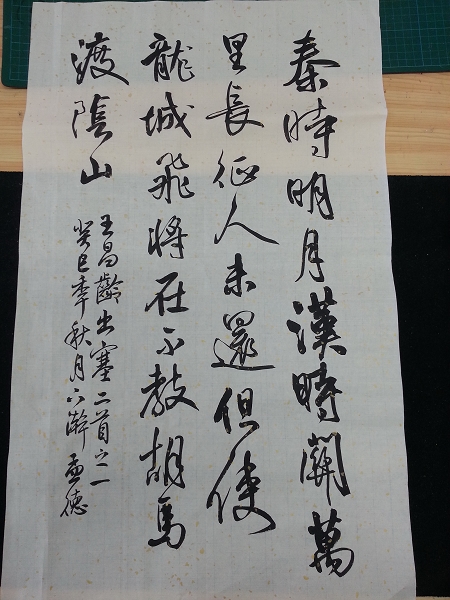 秦時明月漢時關萬
里長征人未還但使
龍城飛將在不教胡馬
渡陰山
王昌齡出塞二首之一
癸巳年秋月六齡孟德